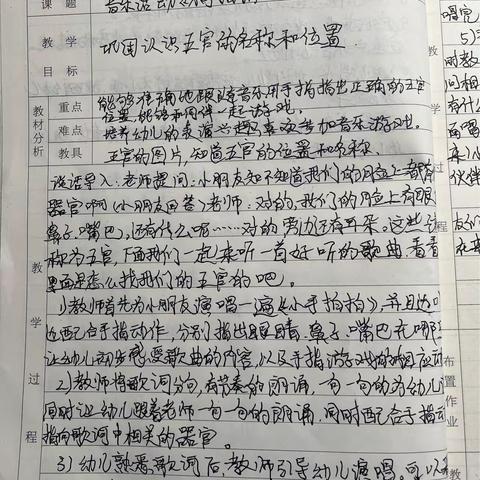 课 题
教 学
目 标
巩固认识五官的名称和位置
教材分析
重点
能够准确地跟随音乐用手指指出正确的五官
位置,能够和同伴一起游戏。
难点
培养幼儿的表演兴趣,喜欢参加音乐游戏。
教具
五官的图片,知道五官的位置和名称。
教 学 过 程
谈话导入:老师提问:小朋友知不知道我们的脸上都有
器官啊(小朋友回答)老师:对的,我们的脸上有眼
鼻子、嘴巴,还有什么呢……对的旁边还有耳朵。这些
称为五官,下面我们一起来听一首好听的歌曲,看看
里面是怎么找我们的五官的吧。
1)教师首先为小朋友演唱一遍《小手拍拍》,并且边
边配合手指动作,分别指出眼睛、鼻子、嘴巴在哪里
让幼儿初步感受歌曲的内容,以及手指游戏的相应动
2)教师将歌词分句,有节奏的朗诵,一句一句的为幼儿
同时让幼儿跟着老师一句一句的朗诵,同时配合手指动
指向歌词中相关的器官。
3)幼儿熟悉歌词后,教师引导幼儿演唱。可以
唱完
5)
时教
间相
有什
再唱
来
伙伴
布置作业
教
学
过
程